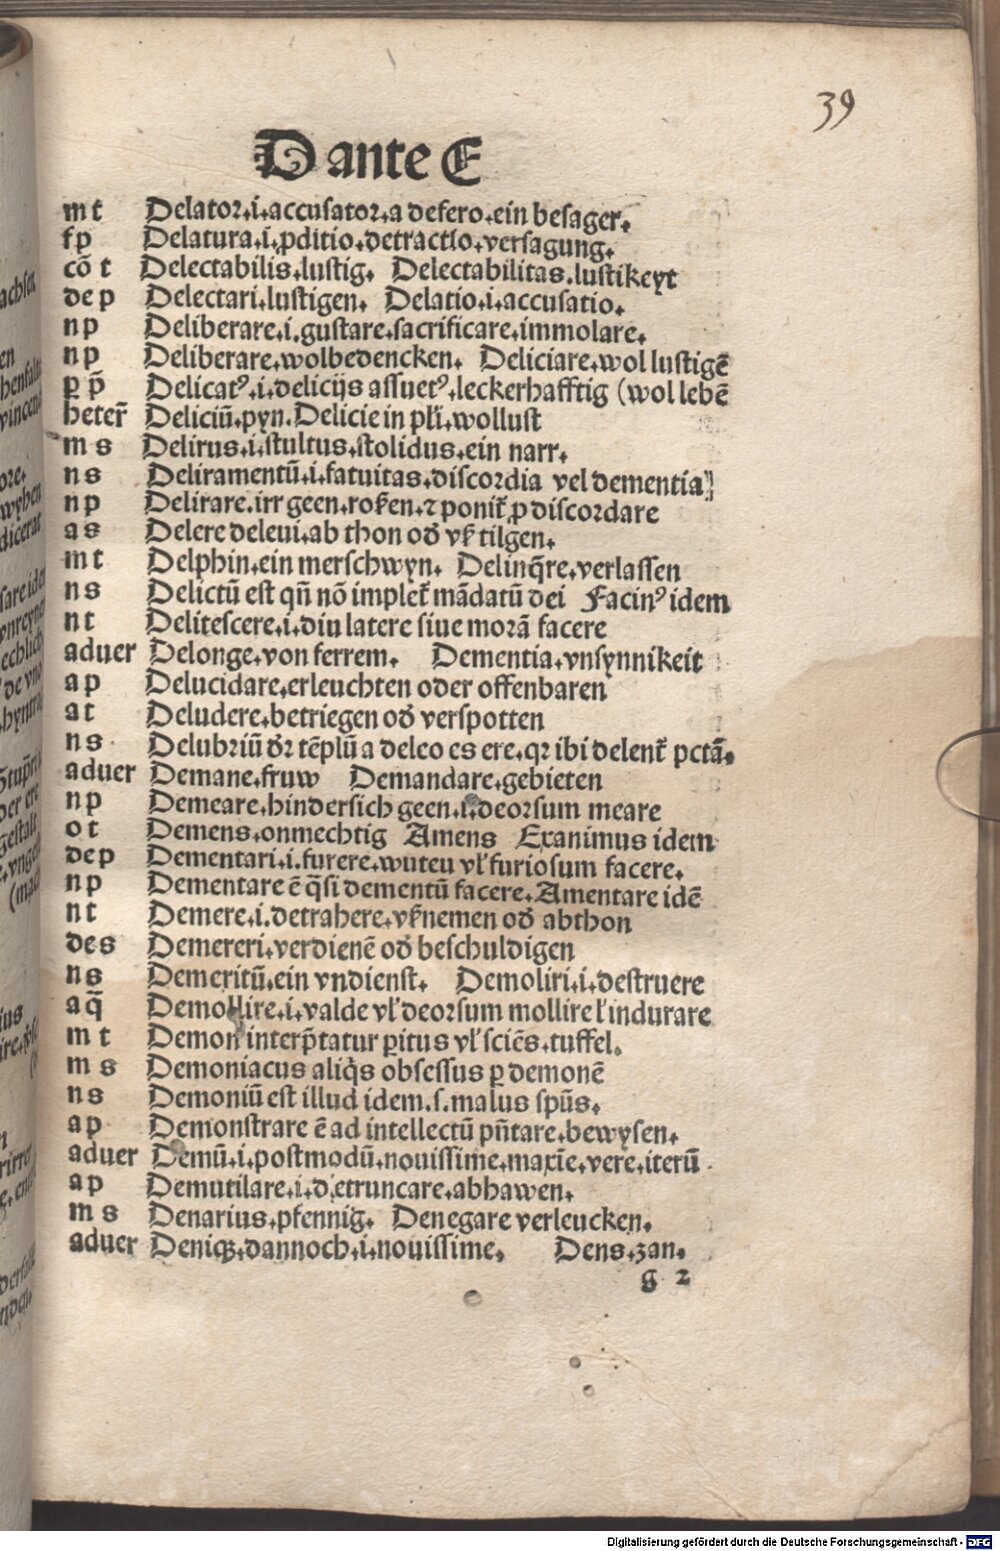 39
D ante E
m t Delator.i.accusator.a defero.ein besager.
f p Delatura.i.ꝓditio.detractio.versagung.
cõ t Delectabilis.lustig. Delectabilitas.lustikeyt
de p Delectari.lustigen. Delatio.i.accusatio.
n p Deliberare.i.gustare.sacrificare.immolare.
n p Deliberare.wolbedencken. Deliciare.wol lustigẽ
ꝑ p̃ Delicatꝰ.i.delicijs assuetꝰ.leckerhafftig (wol lebẽ
heter̃ Deliciũ.pyn. Delicie in pl̃i.wollust
m s Delirus.i.stultus.stolidus.ein narr.
n s Deliramentũ.i.fatuitas.discordia vel dementia
n p Delirare.irr geen.roꝛ̃en.⁊ ponit̃ ꝓ discordare
a s Delere deleui.ab thon od̃ vꝛ̃ tilgen.
m t Delphin.ein merschwyn. Delinq̃re.verlassen
n s Delictũ est qñ nõ implet̃ mãdatũ dei Facinꝰ idem
n t Delitescere.i.diu latere siue morã facere
aduer Delonge.von ferrem. Dementia.vnsynnikeit
a p Delucidare.erleuchten oder offenbaren
a t Deludere.betriegen od̃ verspotten
n s Delubriũ dr̃ tẽplũ a deleo es ere.qꝛ ibi delent̃ pctã.
aduer Demane.fruw Demandare.gebieten
n p Demeare.hindersich geen.i.deorsum meare
o t Demens.onmechtig Amens Exanimus idem
de p Dementari.i.furere.wuteu vl̃ furiosum facere.
n p Dementare ẽ q̃si dementũ facere.Amentare idẽ
n t Demere.i.detrahere.vꝛ̃nemen od̃ abthon
de s Demereri.verdienẽ od̃ beschuldigen
n s Demeritũ.ein vndienst. Demoliri.i.destruere
a q̃ Demollire.i.valde vl̃ deorsum mollire l̃ indurare
m t Demon interp̃tatur ꝑitus vl̃ sciẽs.tuffel.
m s Demoniacus aliq̃s obsessus ꝑ demonẽ
n s Demoniũ est illud idem.s.malus spũs.
a p Demonstrare ẽ ad intellectũ pñtare.bewysen.
aduer Demũ.i.postmodũ.nouissime.maxĩe.vere.iterũ.
a p Demutilare.i.detruncare.abhawen.
m s Denarius.pfennig. Denegare verleucken.
aduer Deniqꝫ.dannoch.i.nouissime. Dens.zan.
g 2
Digitalisierung gefördert durch die Deutsche Forschungsgemeinschaft - DFG